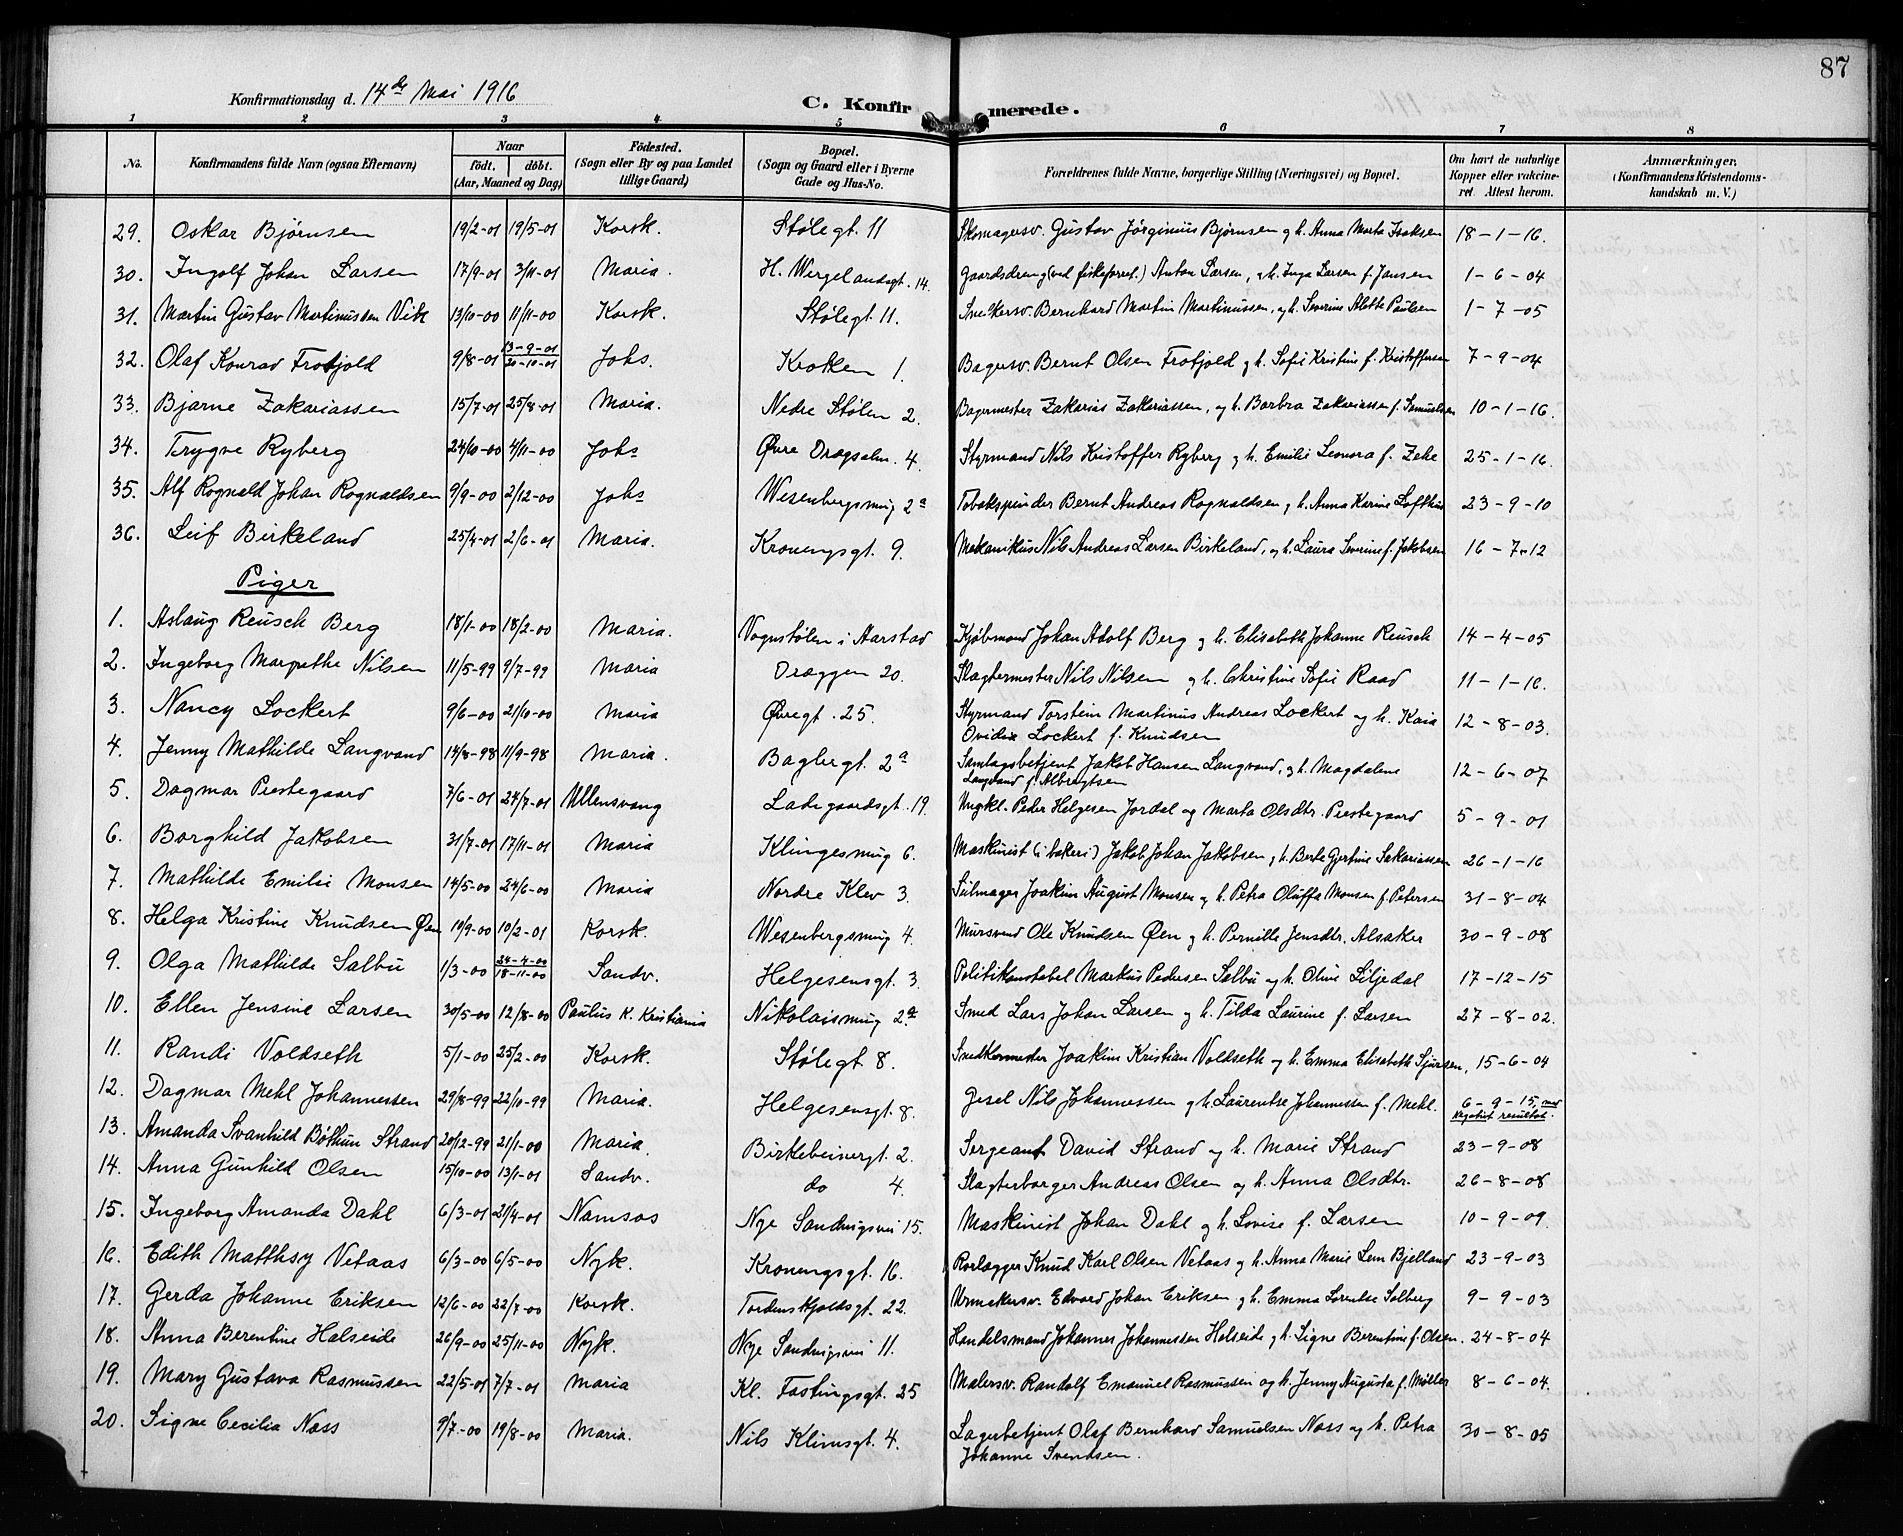 87
Konfirmationsdag d. 14de Mai 1916
C. Konfirmerede.
1 2 3 4 5 6 7 8
No. Konfirmandens fulde Navn (ogsaa Efternavn) Naar født. døbt. (Aar, Maaned og Dag) Fødested. (Sogn eller By og paa Landet tillige Gaard) Bopæl. (Sogn og Gaard eller i Byerne Gade og Hus-No. Forældrenes fulde Navne, borgerlige Stilling (Næringsvei) og Bopæl. Om havt de naturlige Kopper eller vakcineret. Attest herom. Anmærkninger. (Konfirmandens Kristendomskundskab m. V.)
29. Oskar Bjørnsen 19/2-01 19/5-01 Korsk. Stølegt. 11 Skomagersv. Gustav Jørginius Bjørnsen og h. Anna Marta Isaksen 18-1-16.
30. Ingolf Johan Larsen 17/9-01 3/11-01 Maria. H. Wergelandsgt. 14. Gaardsdreng (ved fiskeforret.) Anton Larsen, og h. Inga Larsen f. Jansen 1-6-04
31. Martin Gustav Martinussen Vik 13/10-00 11/11-00 Korsk. Stølegt. 11. Snekkersv. Bernhard Martin Martinussen, og h. Severine Alette Paulsen 1-7-05
32. Olaf Konrad Frotjold 9/8-01 13-9-01 20-10-01 Johs. Kroken 1. Bagersv. Bernt Olsen Frotjold og h. Sofie Kristine f. Kristoffersen 7-9-04
33. Bjarne Zakariassen 15/7-01 25/8-01 Maria. Nedre Stølen 2. Bagermester Zakarias Zakariassen, og h. Barbra Zakariassen f. Samuelsen 10-1-16.
34. Trygve Ryberg 24/10-00 4/11-00 Johs Øvre Dragsalm. 4. Styrmand Nils Kristoffer Ryberg og h. Emilie Leonora f. Zeke 25-1-16.
35. Alf Rognald Johan Rognaldsen 9/9-00 2/12-00 Johs Wesenbergsmug 2a Tobakspinder Bernt Andreas Rognaldsen og h. Anna Karine Lofthus 23-9-10
36. Leif Birkeland 25/4-01 2/6-01 Maria. Kroningsgt. 9. Mekanikus Nils Andreas Larsen Birkeland, og h. Laura Severine f. Jakobsen 16-7-12
Piger
1. Aslaug Reusch Berg 18/1-00 18/2-00 Maria. Vognstølen i Aarstad Kjøbmand Johan Adolf Berg og h. Elisabeth Johanne Reusch 14-4-05
2. Ingeborg Margrethe Nilsen 11/5-99 9/7-99 Maria Dræggen 20. Slagtermester Nils Nilsen og h. Christine Sofie Raad 11-1-16.
3. Nancy Lockert 9/6-00 21/10-00 Maria Øvregt. 25. Styrmand Torstein Martinus Andreas Lockert og h. Kaia 12-8-03.
Ovidia Lockert f. Knudsen
4. Jenny Mathilde Langvand 14/8-98 11/9-98 Maria. Bagbergt. 2a Samlagsbetjent Jakob Hansen Langvand, og h. Magdalene 12-6-07
Langvand f. Albregtsen
5. Dagmar Prestegaard 7/6-01 24/7-01 Ullensvang Ladegaardsgt. 19. Ungkl. Peder Helgesen Jordal og Marta Olsdtr. Prestegaard 5-9-01
6. Borghild Jakobsen 31/7-01 17/11-01 Maria Klingesmug 6. Maskinist (i bakeri) Jakob Johan Jakobsen og h. Berte Gjertine Sakariassen 26-1-16
7. Mathilde Emilie Monsen 14/5-00 24/6-00 Maria Nordre Klev 3. Seilmager Joakim August Monsen og h. Petra Oluffa Monsen f. Petersen 31-8-04
8. Helga Kristine Knudsen Øen 10/9-00 10/2-01 Korsk. Wesenbergsmug 4. Mursvend Ole Knudsen Øen og h. Pernille Jensdtr. Alsaker 30-9-08
9. Olga Mathilde Salbu 1/3-00 24-4-00 18-11-00 Sandv. Helgesensgt. 3. Politikonstabel Markus Pedersen Salbu og h. Oline Siljedal 17-12-15
10. Ellen Jensine Larsen 30/5-00 12/8-00 Paulus K. Kristiania Nikolaismug 2a Smed Lars Johan Larsen og h. Tilda Laurine f. Larsen 27-8-02.
11. Randi Voldseth 5/1-00 25/2-00 Korsk. Stølegt 8. Snedkermester Joakim Kristian Voldseth og h. Emma Elisabeth Sjursen, 15-6-04
12. Dagmar Mehl Johannessen 29/8-99 22/10-99 Maria. Helgesensgt. 8. Gesel Nils Johannessen og h. Laurentse Johannessen f. Mehl. 6-9-15, med negativt resultat.
13. Amanda Svanhild Bøthun Strand 20/12-99 21/1-00 Maria. Birkebeinergt. 2. Sergeant David Strand og h. Marie Strand 23-9-08
14. Anna Gunhild Olsen 15/10-00 13/1-01 Sandv. do 4. Slagterborger Andreas Olsen og h. Anna Olsdtr. 26-8-08
15. Ingeborg Amanda Dahl 6/3-01 21/4-01 Namsos Nye Sandvigsvei 15. Maskinist Johan Dahl og h. Lovise f. Larsen 10-9-09.
16. Edith Matthsy Vetaas 6/3-00 6/5-00 Nyk. Kroningsgt. 16. Rørlægger Knud Karl Olsen Vetaas og h. Anna Marie Lem Bjelland 23-9-03
17. Gerda Johanne Eriksen 12/6-00 22/7-00 Korsk. Tordenskjoldsgt. 22. Urmakersv. Edvard Johan Eriksen og h. Emma Lorentse Solberg 9-9-03
18. Anna Berentine Halseide 26/9-00 25/11-00 Nyk. Nye Sandvigsvei 11. Handelsmand Johannes Johannessen Halseide og h. Signe Berentine f. Olsen. 24-8-04
19. Mary Gustava Rasmussen 22/5-01 7/7-01 Maria Kl. Fastingsgt. 25 Malersv. Randolf Emanuel Rasmussen og h. Jenny Augusta f. Møller 8-6-04.
20. Signe Cecilia Næss 9/7-00 19/8-00 Maria. Nils Klimsgt. 4. Lagerbetjent Olaf Bernhard Samuelsen Næss og h. Petra 30-8-05
Johanne Svendsen.